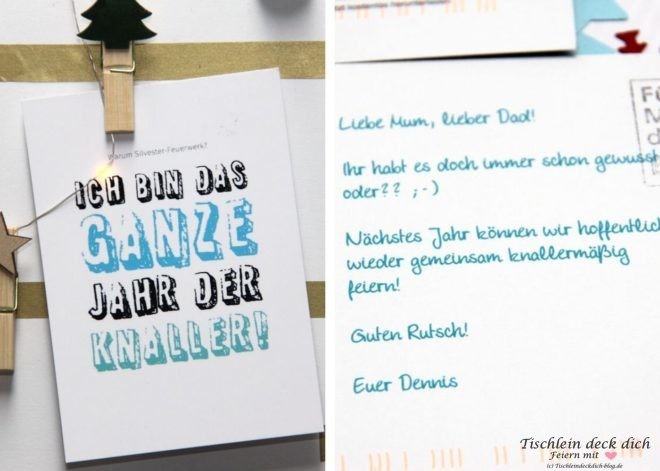 Warum Silvester-Feuerwerk?
ICH BIN DAS
GANZE
JAHR DER
KNALLER!
Liebe Mum, lieber Dad!
Ihr habt es doch immer schon gewusst
oder?? ;-)
Nächstes Jahr können wir hoffentlic
wieder gemeinsam knallermäßig
feiern!
Guten Rutsch!
Euer Dennis
Tischlein deck dich
Feiern mit
(c) Tischleindeckdich-blog.de